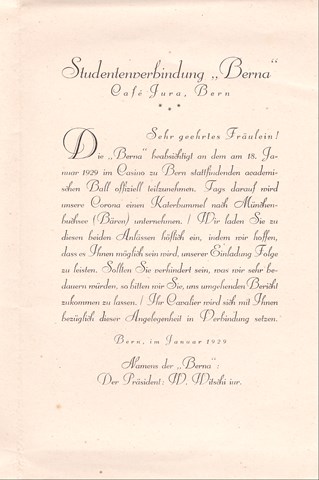 Studentenverbindung „Berna“
Café Jura, Bern
* * *
Sehr geehrtes Fräulein!
Die „Berna“ beabsichtigt an dem am 18. Ja-
nuar 1929 im Casino zu Bern stattfindenden academi-
schen Ball offiziell teilzunehmen. Tags darauf wird
unsere Corona einen Katerbummel nach München-
buchsee (Bären) unternehmen. / Wir laden Sie zu
diesen beiden Anlässen höflich ein, indem wir hoffen,
dass es Ihnen möglich sein wird, unserer Einladung Folge
zu leisten. Sollten Sie verhindert sein, was wir sehr be-
dauern würden, so bitten wir Sie, uns umgehenden Bericht
zukommen zu lassen. / Ihr Cavalier wird sich mit Ihnen
bezüglich dieser Angelegenheit in Verbindung setzen.
Bern, im Januar 1929
Namens der „Berna“:
Der Präsident: W. Witschi iur.